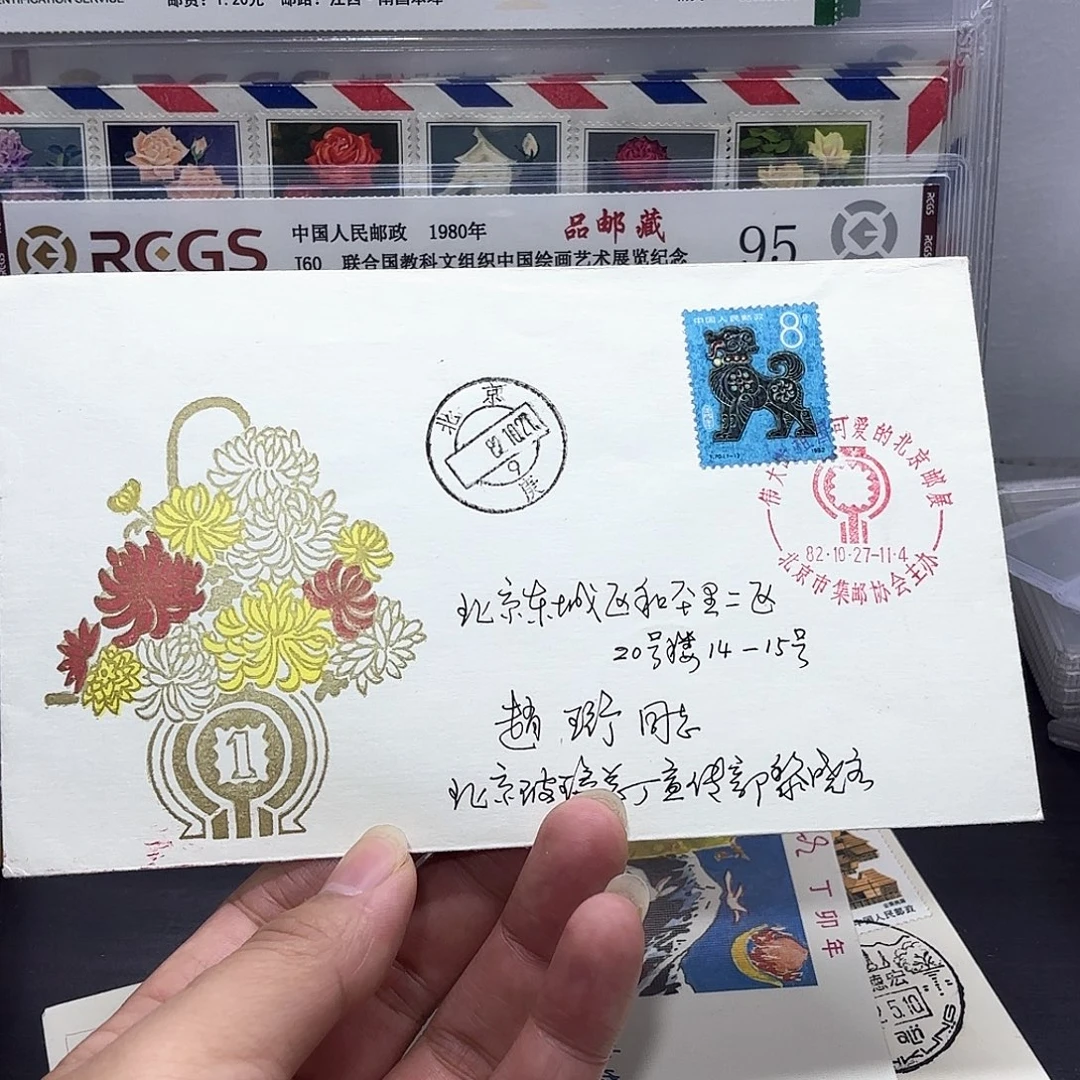 邮资：1.20元 邮路：江西-南昌本埠
RCGS
中国人民邮政 1980年
品邮藏
95
RCGS
RCGS
J60 联合国教科文组织中国绘画艺术展览纪念
中国人民邮政
8分
T.70.(1-1)
1982
北京
82.10.27
9
伟大 可爱的北京邮展
82·10·27-11·4
北京市集邮协会主办
北京东城区和平里二区
20号楼14-15号
赵 珩 同志
北京玻璃总厂宣传部黎晓
1
丁卯年
中国人民邮政
5.10